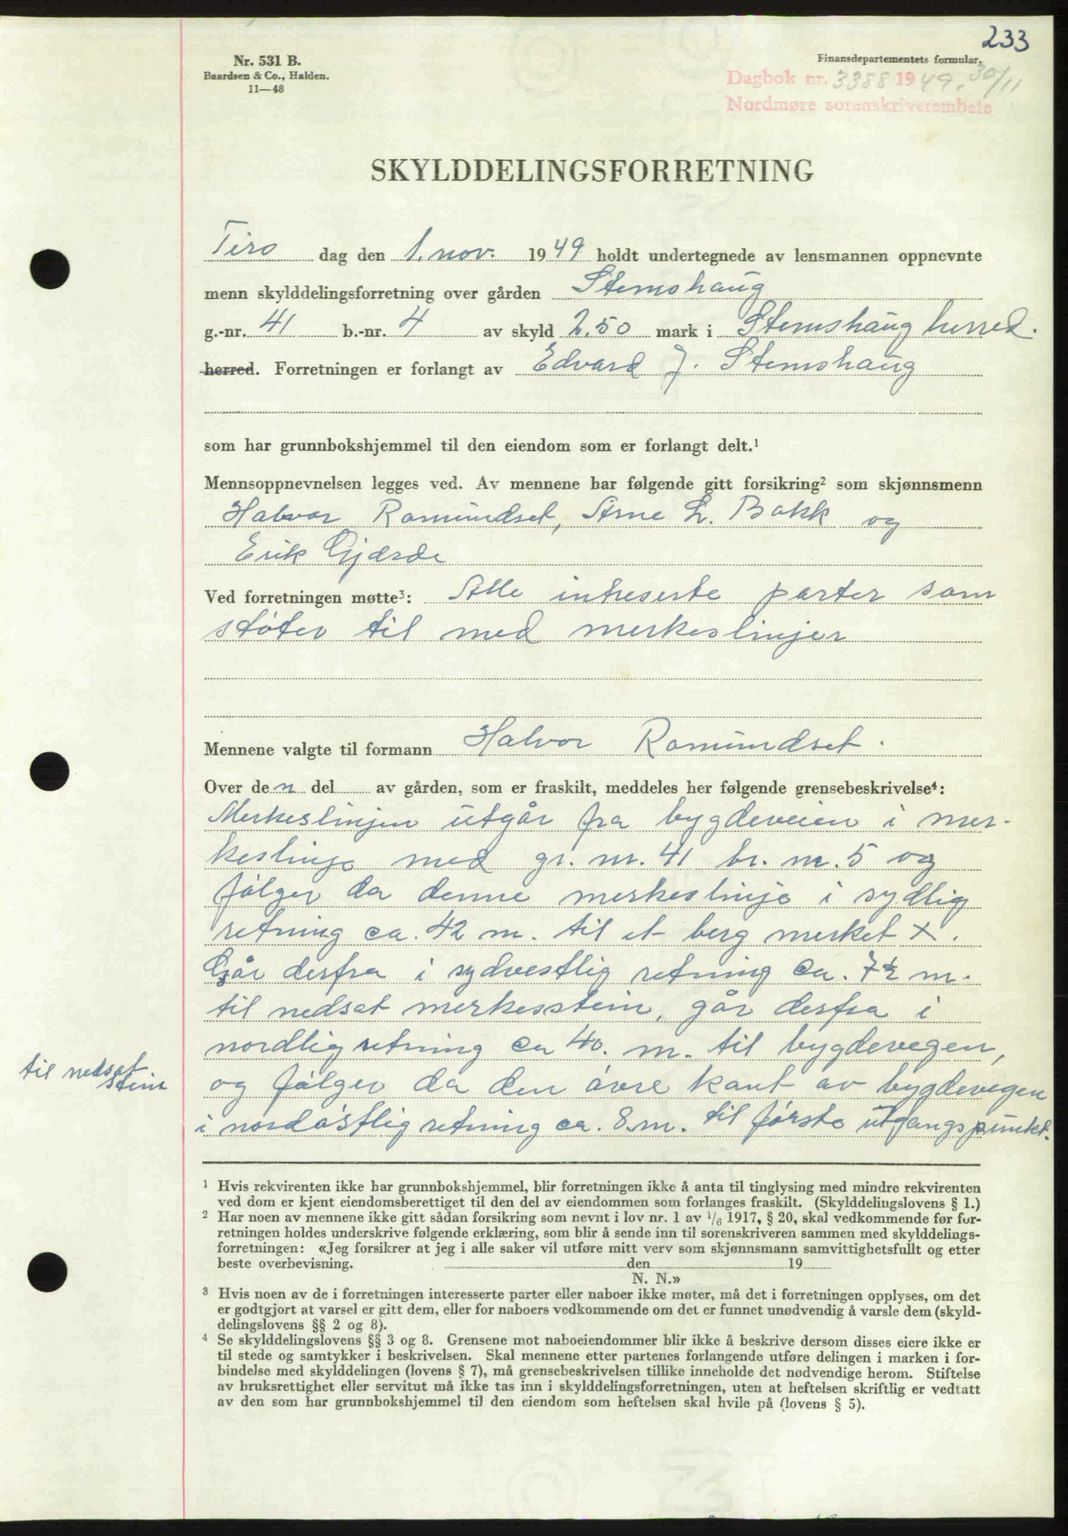 233
Nr. 531 B.
Baardsen & Co., Halden.
11—48
Finansdepartementets formular.
Dagbok nr. 3388 1949. 30/11
Nordmøre sorenskriverembete
SKYLDDELINGSFORRETNING
Tirs dag den 1. nov. 1949 holdt undertegnede av lensmannen oppnevnte
menn skylddelingsforretning over gården Stemshaug
g.-nr. 41 b.-nr. 4 av skyld 2.50 mark i Stemshaug herred.
herred. Forretningen er forlangt av Edvard J. Stemshaug
som har grunnbokshjemmel til den eiendom som er forlangt delt.¹
Mennsoppnevnelsen legges ved. Av mennene har følgende gitt forsikring² som skjønnsmenn
Halvor Romundset, Arne L. Bakk og
Erik Gjærde
Ved forretningen møtte³: Alle intreserte parter som
støter til med merkeslinjer
Mennene valgte til formann Halvor Romundset.
Over den del av gården, som er fraskilt, meddeles her følgende grensebeskrivelse⁴:
Merkeslinjen utgår fra bygdeveien i mer-
keslinje med gr. nr. 41 br. nr. 5 og
følger da denne merkeslinje i sydlig
retning ca. 42 m. til et berg merket X.
Går derfra i sydvestlig retning ca. 7½ m.
til nedsat merkesstein, går derfra i
nordlig retning ca 40. m. til bygdevegen,
til nedsat
stein
og følger da den øvre kant av bygdevegen
i nordøstlig retning ca. 8 m. til første utgangspunkt.
¹ Hvis rekvirenten ikke har grunnbokshjemmel, blir forretningen ikke å anta til tinglysing med mindre rekvirenten
ved dom er kjent eiendomsberettiget til den del av eiendommen som forlanges fraskilt. (Skylddelingslovens § 1.)
² Har noen av mennene ikke gitt sådan forsikring som nevnt i lov nr. 1 av ¹/₆ 1917, § 20, skal vedkommende før for-
retningen holdes underskrive følgende erklæring, som blir å sende inn til sorenskriveren sammen med skylddelings-
forretningen: «Jeg forsikrer at jeg i alle saker vil utføre mitt verv som skjønnsmann samvittighetsfullt og etter
beste overbevisning. den 19
N. N.»
³ Hvis noen av de i forretningen interesserte parter eller naboer ikke møter, må det i forretningen opplyses, om det
er godtgjort at varsel er gitt dem, eller for naboers vedkommende om det er funnet unødvendig å varsle dem (skyld-
delingslovens §§ 2 og 8).
⁴ Se skylddelingslovens §§ 3 og 8. Grensene mot naboeiendommer blir ikke å beskrive dersom disses eiere ikke er
til stede og samtykker i beskrivelsen. Skal mennene etter partenes forlangende utføre delingen i marken i for-
bindelse med skylddelingen (lovens § 7), må grensebeskrivelsen tillike inneholde det nødvendige herom. Stiftelse
av bruksrettighet eller servitut må ikke tas inn i skylddelingsforretningen, uten at heftelsen skriftlig er vedtatt
av den som har grunnbokshjemmel til den eiendom som heftelsen skal hvile på (lovens § 5).